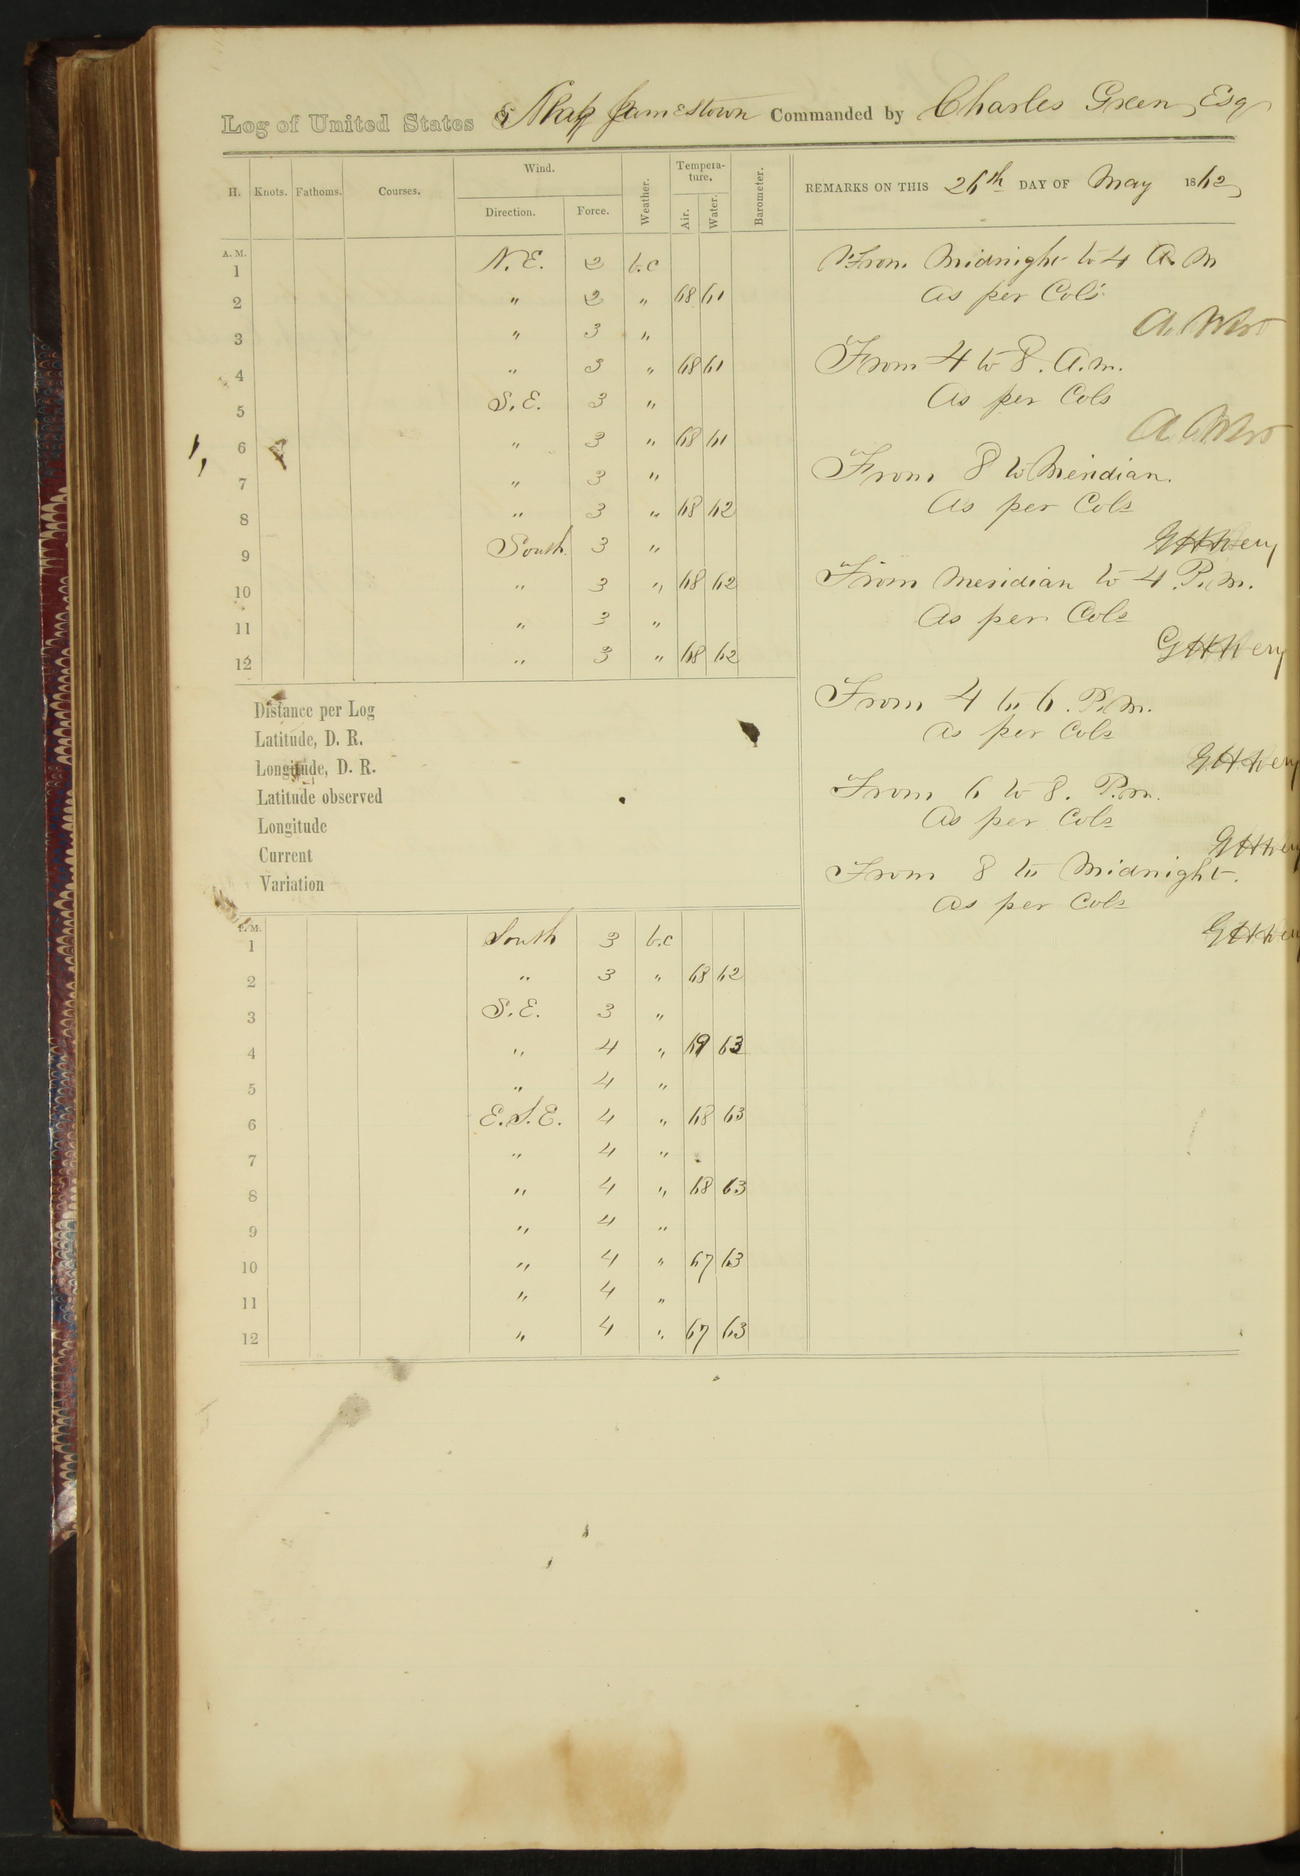 Log of United States Ship Jamestown Commanded by Charles Green, Esq
H. Knots. Fathoms. Courses. Wind. Weather. Tempera-ture. Barometer.
Direction. Force. Air. Water.
REMARKS ON THIS 26th DAY OF May 1862,
A. M.
1 N.E. 2 b.c
2 " 2 " 68 61
3 " 3 "
4 " 3 " 68 61
5 S.E. 3 "
6 " 3 " 68 61
7 " 3 "
8 " 3 " 68 62
9 South 3 "
10 " 3 " 68 62
11 " 3 "
12 " 3 " 68 62
Distance per Log
Latitude, D. R.
Longitude, D. R.
Latitude observed
Longitude
Current
Variation
P. M.
1 South 3 b.c
2 " 3 " 68 62
3 S.E. 3 "
4 " 4 " 69 63
5 " 4 "
6 E.S.E. 4 " 68 63
7 " 4 "
8 " 4 " 68 63
9 " 4 "
10 " 4 " 67 63
11 " 4 "
12 " 4 " 67 63
From Midnight to 4 A. M
As per Cols
From 4 to 8. A.m.
As per Cols
From 8 to Meridian.
As per Cols
From Meridian to 4. P.m.
As per Cols
From 4 to 6. P.m.
As per Cols
From 6 to 8. P.m.
As per Cols
From 8 to Midnight.
As per Cols